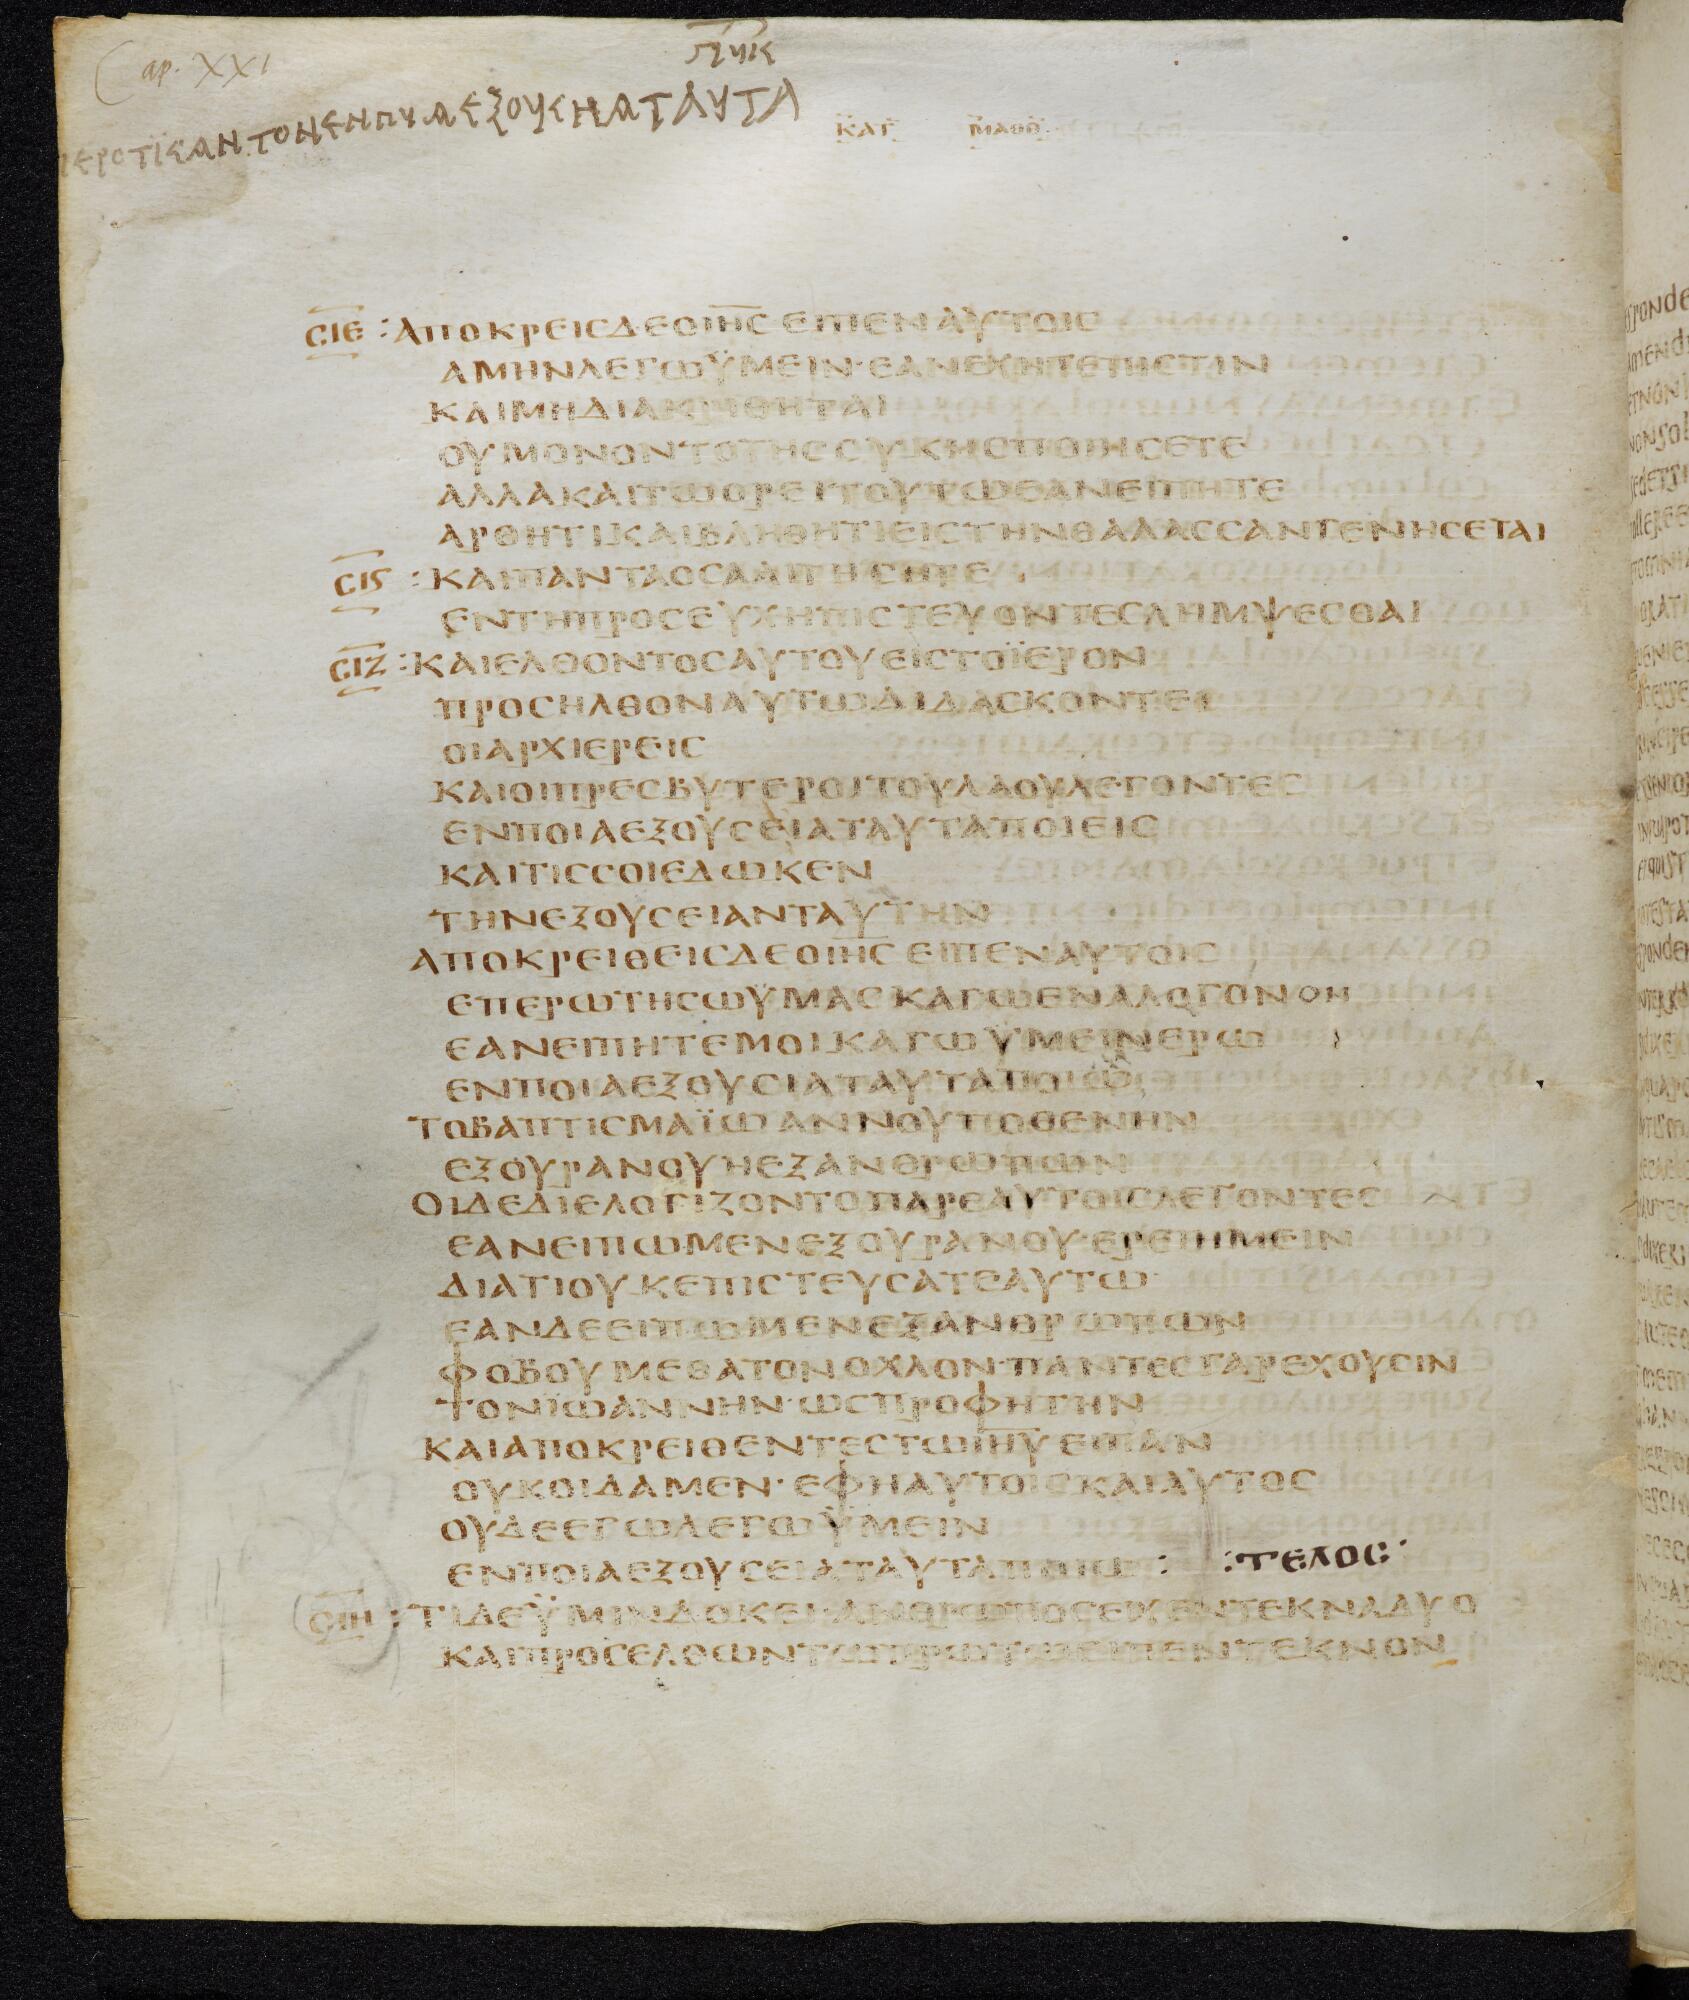 Cap. XXI
ΚΑΤ ΜΑΘΘ
ϹΙΕ : ΑΠΟΚΡΕΙϹΔΕΟΙΗϹ ΕΙΠΕΝΑΥΤΟΙϹ
ΑΜΗΝΛΕΓΩΫΜΕΙΝ·ΕΑΝΕΧΗΤΕΠΙϹΤΙΝ
ΚΑΙΜΗΔΙΑΚΡΙΘΗΤΑΙ
ΟΥΜΟΝΟΝΤΟΤΗϹϹΥΚΗϹΠΟΙΗϹΕΤΕ
ΑΛΛΑΚΑΙΤΩΟΡΕΙΤΟΥΤΩΕΑΝΕΙΠΗΤΕ
ΑΡΘΗΤΙΚΑΙΒΛΗΘΗΤΙΕΙϹΤΗΝΘΑΛΑϹϹΑΝΓΕΝΗϹΕΤΑΙ
ϹΙϚ : ΚΑΙΠΑΝΤΑΟϹΑΑΙΤΗϹΗΤΕ
ΕΝΤΗΠΡΟϹΕΥΧΗΠΙϹΤΕΥΟΝΤΕϹΛΗΜΨΕϹΘΑΙ
ϹΙΖ : ΚΑΙΕΛΘΟΝΤΟϹΑΥΤΟΥΕΙϹΤΟΪΕΡΟΝ
ΠΡΟϹΗΛΘΟΝΑΥΤΩΔΙΔΑϹΚΟΝΤΕΙ
ΟΙΑΡΧΙΕΡΕΙϹ
ΚΑΙΟΙΠΡΕϹΒΥΤΕΡΟΙΤΟΥΛΑΟΥΛΕΓΟΝΤΕϹ
ΕΝΠΟΙΑΕΞΟΥϹΕΙΑΤΑΥΤΑΠΟΙΕΙϹ
ΚΑΙΤΙϹϹΟΙΕΔΩΚΕΝ
ΤΗΝΕΞΟΥϹΕΙΑΝΤΑΥΤΗΝ
ΑΠΟΚΡΕΙΘΕΙϹΔΕΟΙΗϹ ΕΙΠΕΝΑΥΤΟΙϹ
ΕΠΕΡΩΤΗϹΩΫΜΑϹΚΑΓΩΕΝΑΛΟΓΟΝΟΝ
ΕΑΝΕΙΠΗΤΕΜΟΙΚΑΓΩΫΜΕΙΝΕΡΩ
ΕΝΠΟΙΑΕΞΟΥϹΙΑΤΑΥΤΑΠΟΙΩ
ΤΟΒΑΠΤΙϹΜΑΪΩΑΝΝΟΥΠΟΘΕΝΗΝ
ΕΞΟΥΡΑΝΟΥΗΕΞΑΝΘΡΩΠΩΝ
ΟΙΔΕΔΙΕΛΟΓΙΖΟΝΤΟΠΑΡΕΑΥΤΟΙϹΛΕΓΟΝΤΕϹ
ΕΑΝΕΙΠΩΜΕΝΕΞΟΥΡΑΝΟΥ·ΕΡΕΙΗΜΕΙΝ
ΔΙΑΤΙΟΥΚΕΠΙϹΤΕΥϹΑΤΕΑΥΤΩ
ΕΑΝΔΕΕΙΠΩΜΕΝΕΞΑΝΘΡΩΠΩΝ
ΦΟΒΟΥΜΕΘΑΤΟΝΟΧΛΟΝ·ΠΑΝΤΕϹΓΑΡΕΧΟΥϹΙΝ
ΤΟΝΪΩΑΝΝΗΝ·ΩϹΠΡΟΦΗΤΗΝ
ΚΑΙΑΠΟΚΡΕΙΘΕΝΤΕϹΤΩΙΗΥ ΕΙΠΑΝ
ΟΥΚΟΙΔΑΜΕΝ·ΕΦΗΑΥΤΟΙϹΚΑΙΑΥΤΟϹ
ΟΥΔΕΕΓΩΛΕΓΩΫΜΕΙΝ
ΕΝΠΟΙΑΕΞΟΥϹΕΙΑΤΑΥΤΑΠΟΙΩ : :ΤΕΛΟϹ:
ϹΙΗ : ΤΙΔΕΫΜΙΝΔΟΚΕΙ·ΑΝΘΡΩΠΟϹΕΙΧΕΝΤΕΚΝΑΔΥΟ
ΚΑΙΠΡΟϹΕΛΘΩΝΤΩΠΡΩΤΩΕΙΠΕΝΤΕΚΝΟΝ